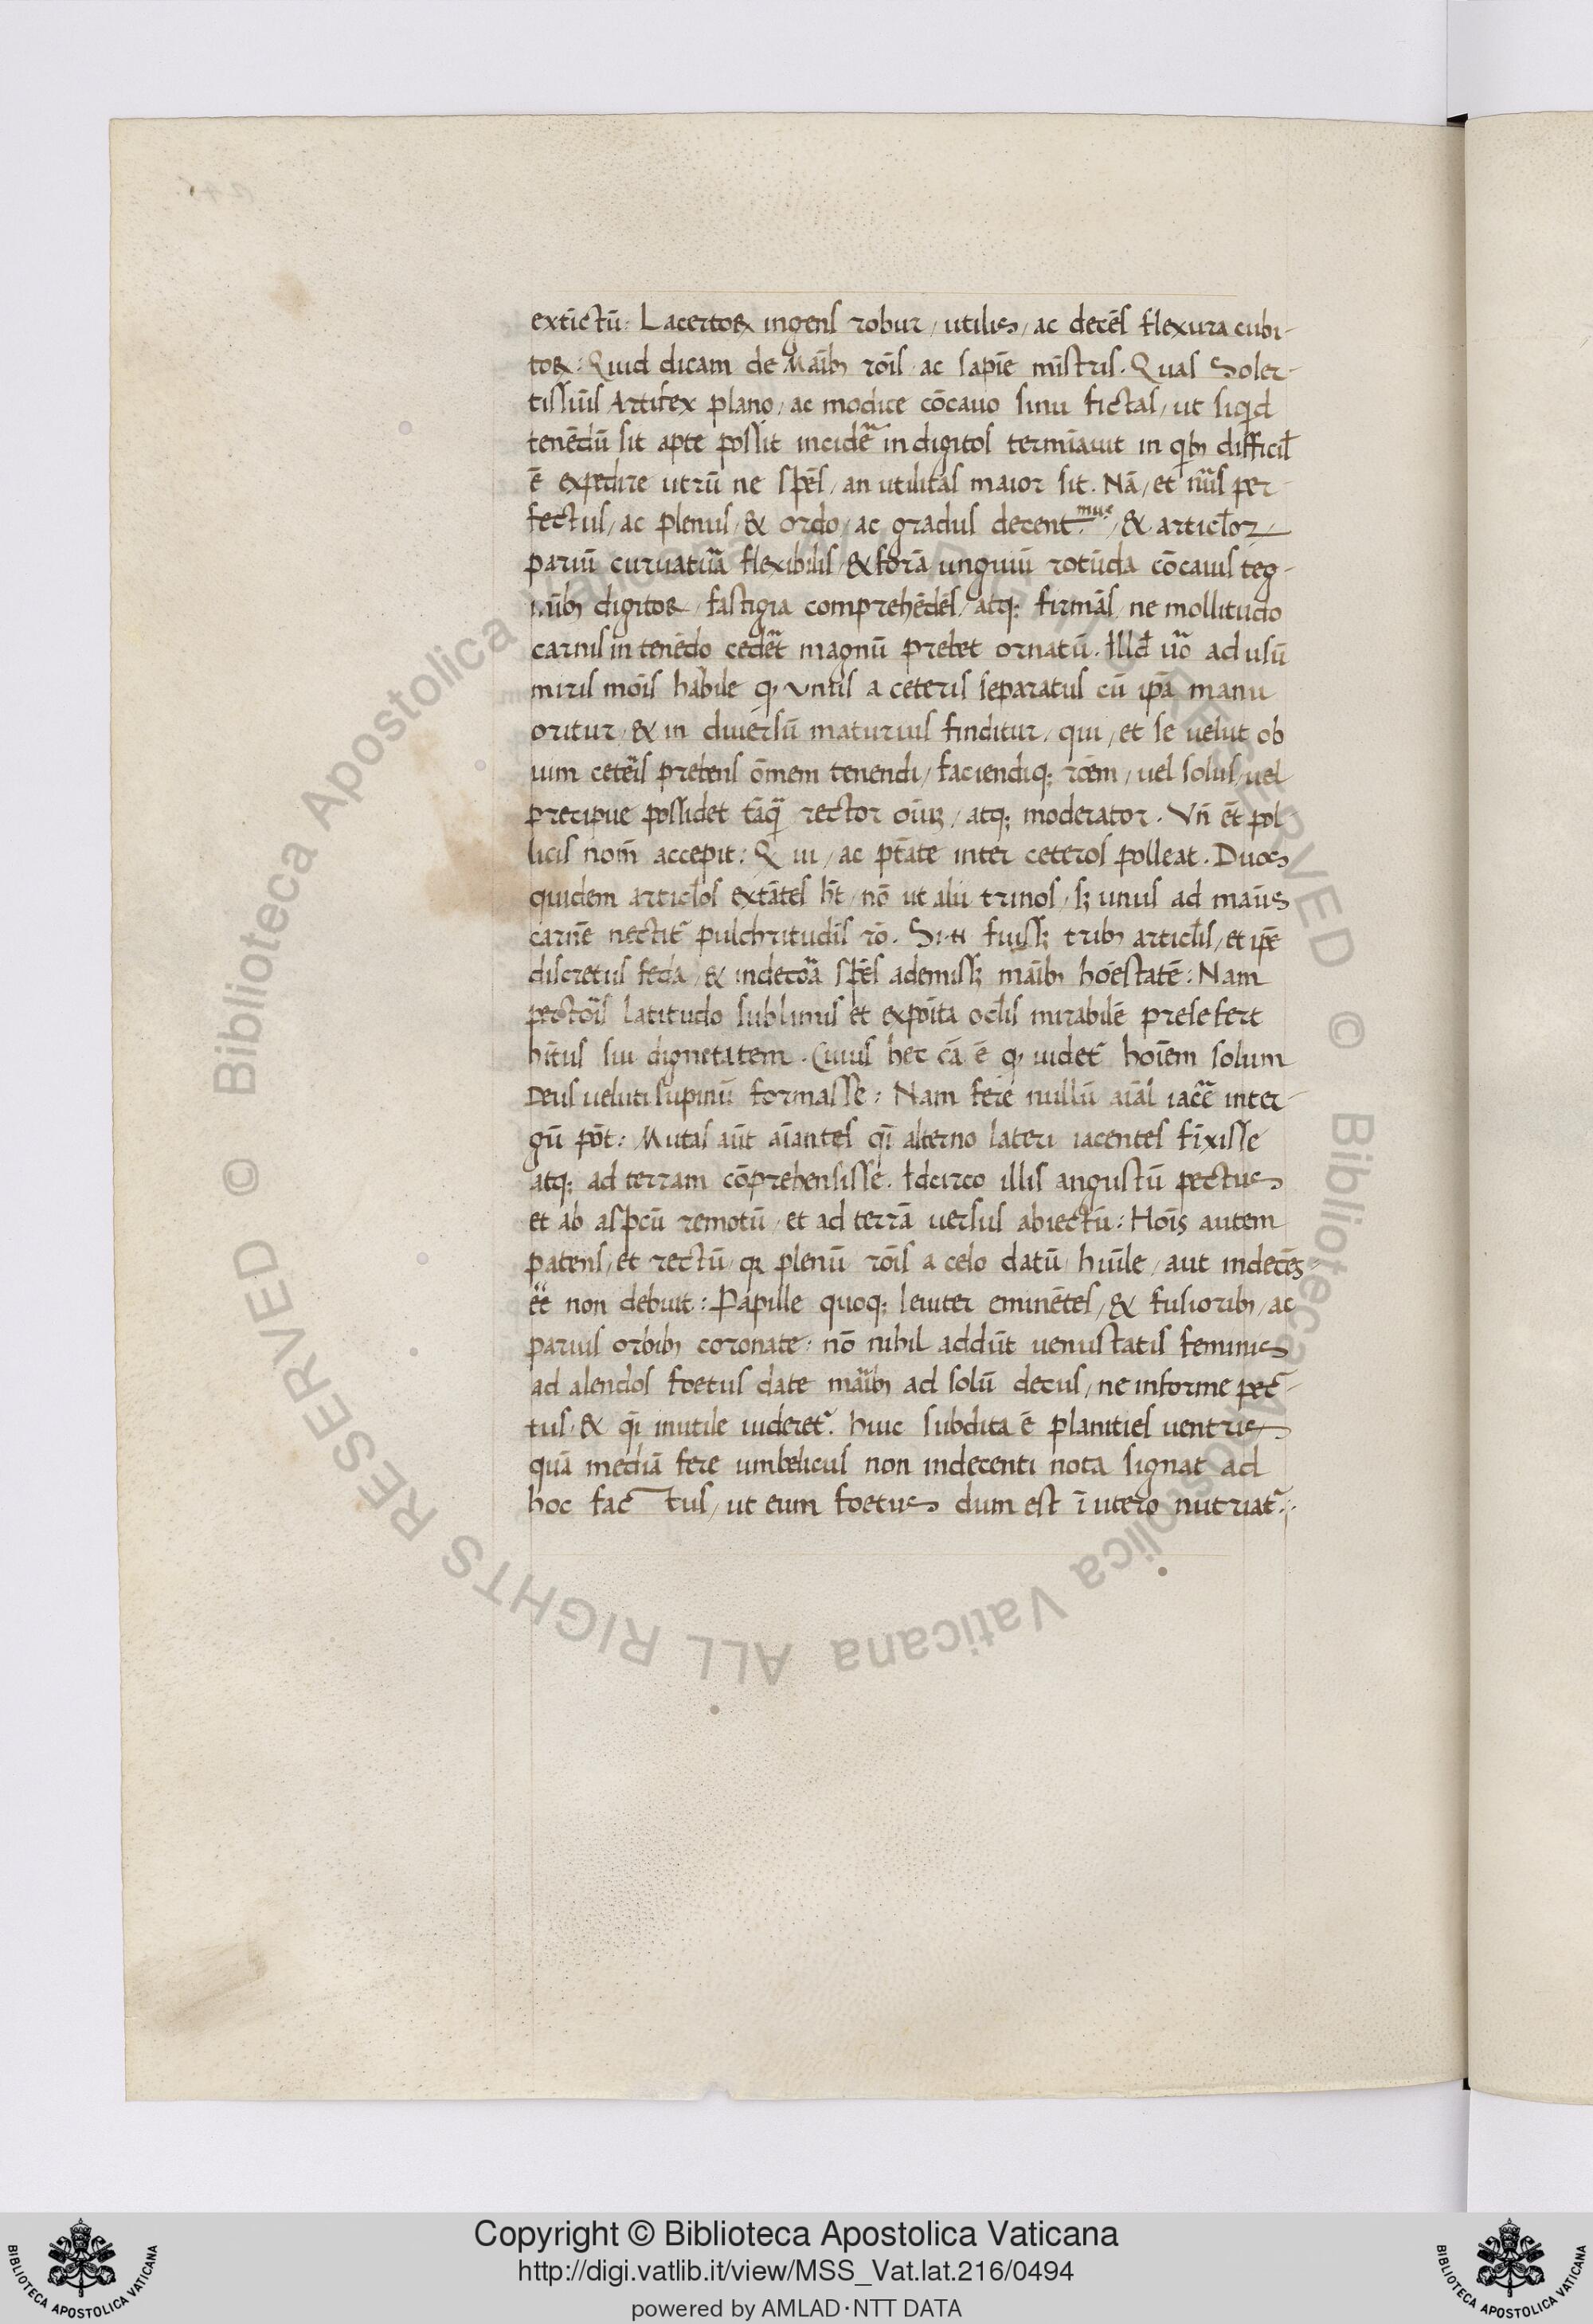 extīctū: Lacertoꝝ ingens robur / utilis / ac decēs flexura cubi-
toꝝ: Quid dicam de Maīb; rōis ac sapīe mīstris. Quas Soler-
tissiūis Artifex plano / ac modice cōcauo sinu fictas / ut siqͥd
tenēdū sit apte possit incidē in digitos termīauit in qͥb; difficil̄
ē expedire utrū ne spēs / an utilitas maior sit. Nā / et nūs per-
fectus / ac plenus / & ordo / ac gradus decent.mus / & articl̄or
pariū curuatūa flexibilis / & forā unguiū rotūda cōcauis teg-
mīb; digitoꝝ / fastigia comprehēdēs / atq; firmās / ne mollitudo
carnis in tenēdo cedēt magnū prebet ornatū. Illd̄ uo ad usū
miris mōis habile q, vnus a ceteris separatus cū ipā manu
oritur / & in diuersū maturius finditur / qui / et se uelut ob
uim cetēis prebens ōmem tenendi / faciendiq; rōem / uel solus / uel
precipue possidet tāqͣ rector oīuꝫ / atq; moderator. Vn̄ ēt pol
licis nom̄ accepit: Q ui / ac ptāte inter ceteros polleat. Duos
quidem articl̄os extātes h̄t / nō ut alii trinos / sꝫ unus ad maūs
carnē nectit᷑ pulchritudīs rō. Si .n. fuissꝫ trib; articl̄is / et ipē
discretus feda / & indecoā spēs ademissꝫ maīb; hōestatē: Nam
pectoīs latitudo sublimis et expōita ocl̄is mirabilē prese fert
hītus sui dignetatem. Cuius hec cā ē q, uidet᷑ hoīem solum
Deus ueluti supinū formasse: Nam fere nullū aiāl iacē inter-
gū pōt: Mutas aūt aīantes qͣi alterno lateri iacentes fīxisse
atq; ad terram cōprehensisse. Idcirco illis angustū pectus
et ab aspcū remotū / et ad terrā uersus abiectū: Hoīs autem
patens / et rectū / qꝛ plenū rōis a celo datū / huīle / aut indecēs
ēe non debuit: Papille quoq; leuiter eminētes / & fusiorib; / ac
paruis orbib; coronate: nō nihil addūt uenustatis feminis
ad alendos foetus date māib; ad solū decus / ne informe pec-
tus / & qͣi inutile uideret᷑. huic subdita ē planities uentris
quā mediā fere umbelicus non indecenti nota signat ad
hoc fac tus / ut eum foetus dum est ī utero nutriat᷑:
Copyright © Biblioteca Apostolica Vaticana
http://digi.vatlib.it/view/MSS_Vat.lat.216/0494
powered by AMLAD·NTT DATA
© Biblioteca Apostolica Vaticana ALL RIGHTS RESERVED © Biblioteca Apostolica Vaticana ALL RIGHTS RESERVED
BIBLIOTECA APOSTOLICA VATICANA
BIBLIOTECA APOSTOLICA VATICANA